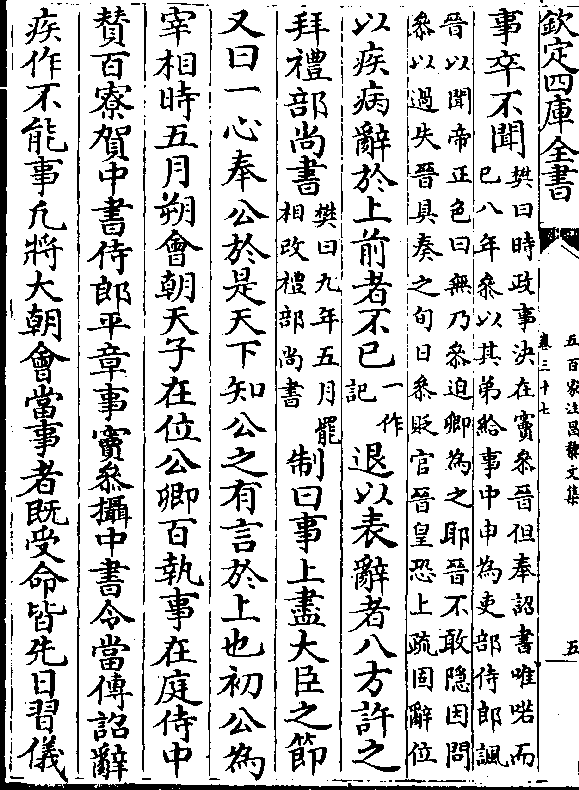 欽定四庫全書
五百家注昌黎文集
卷三十七
五
事卒不聞樊曰時政事決在竇參晉但奉詔書唯喏而
已八年參以其弟給事中申為吏部侍郎諷
晉以聞帝正色曰無乃參迫卿為之耶晉不敢隱因問
參以過失晉具奏之旬日參貶官晉皇恐上疏固辭位
以疾病辭於上前者不已一作記退以表辭者八方許之
拜禮部尚書樊曰九年五月罷相改禮部尚書制曰事上盡大臣之節
又曰一心奉公於是天下知公之有言於上也初公為
宰相時五月朔會朝天子在位公卿百執事在庭侍中
贊百寮賀中書侍郎平章事竇參攝中書令當傳詔辭
疾作不能事凡將大朝會當事者既受命皆先日習儀